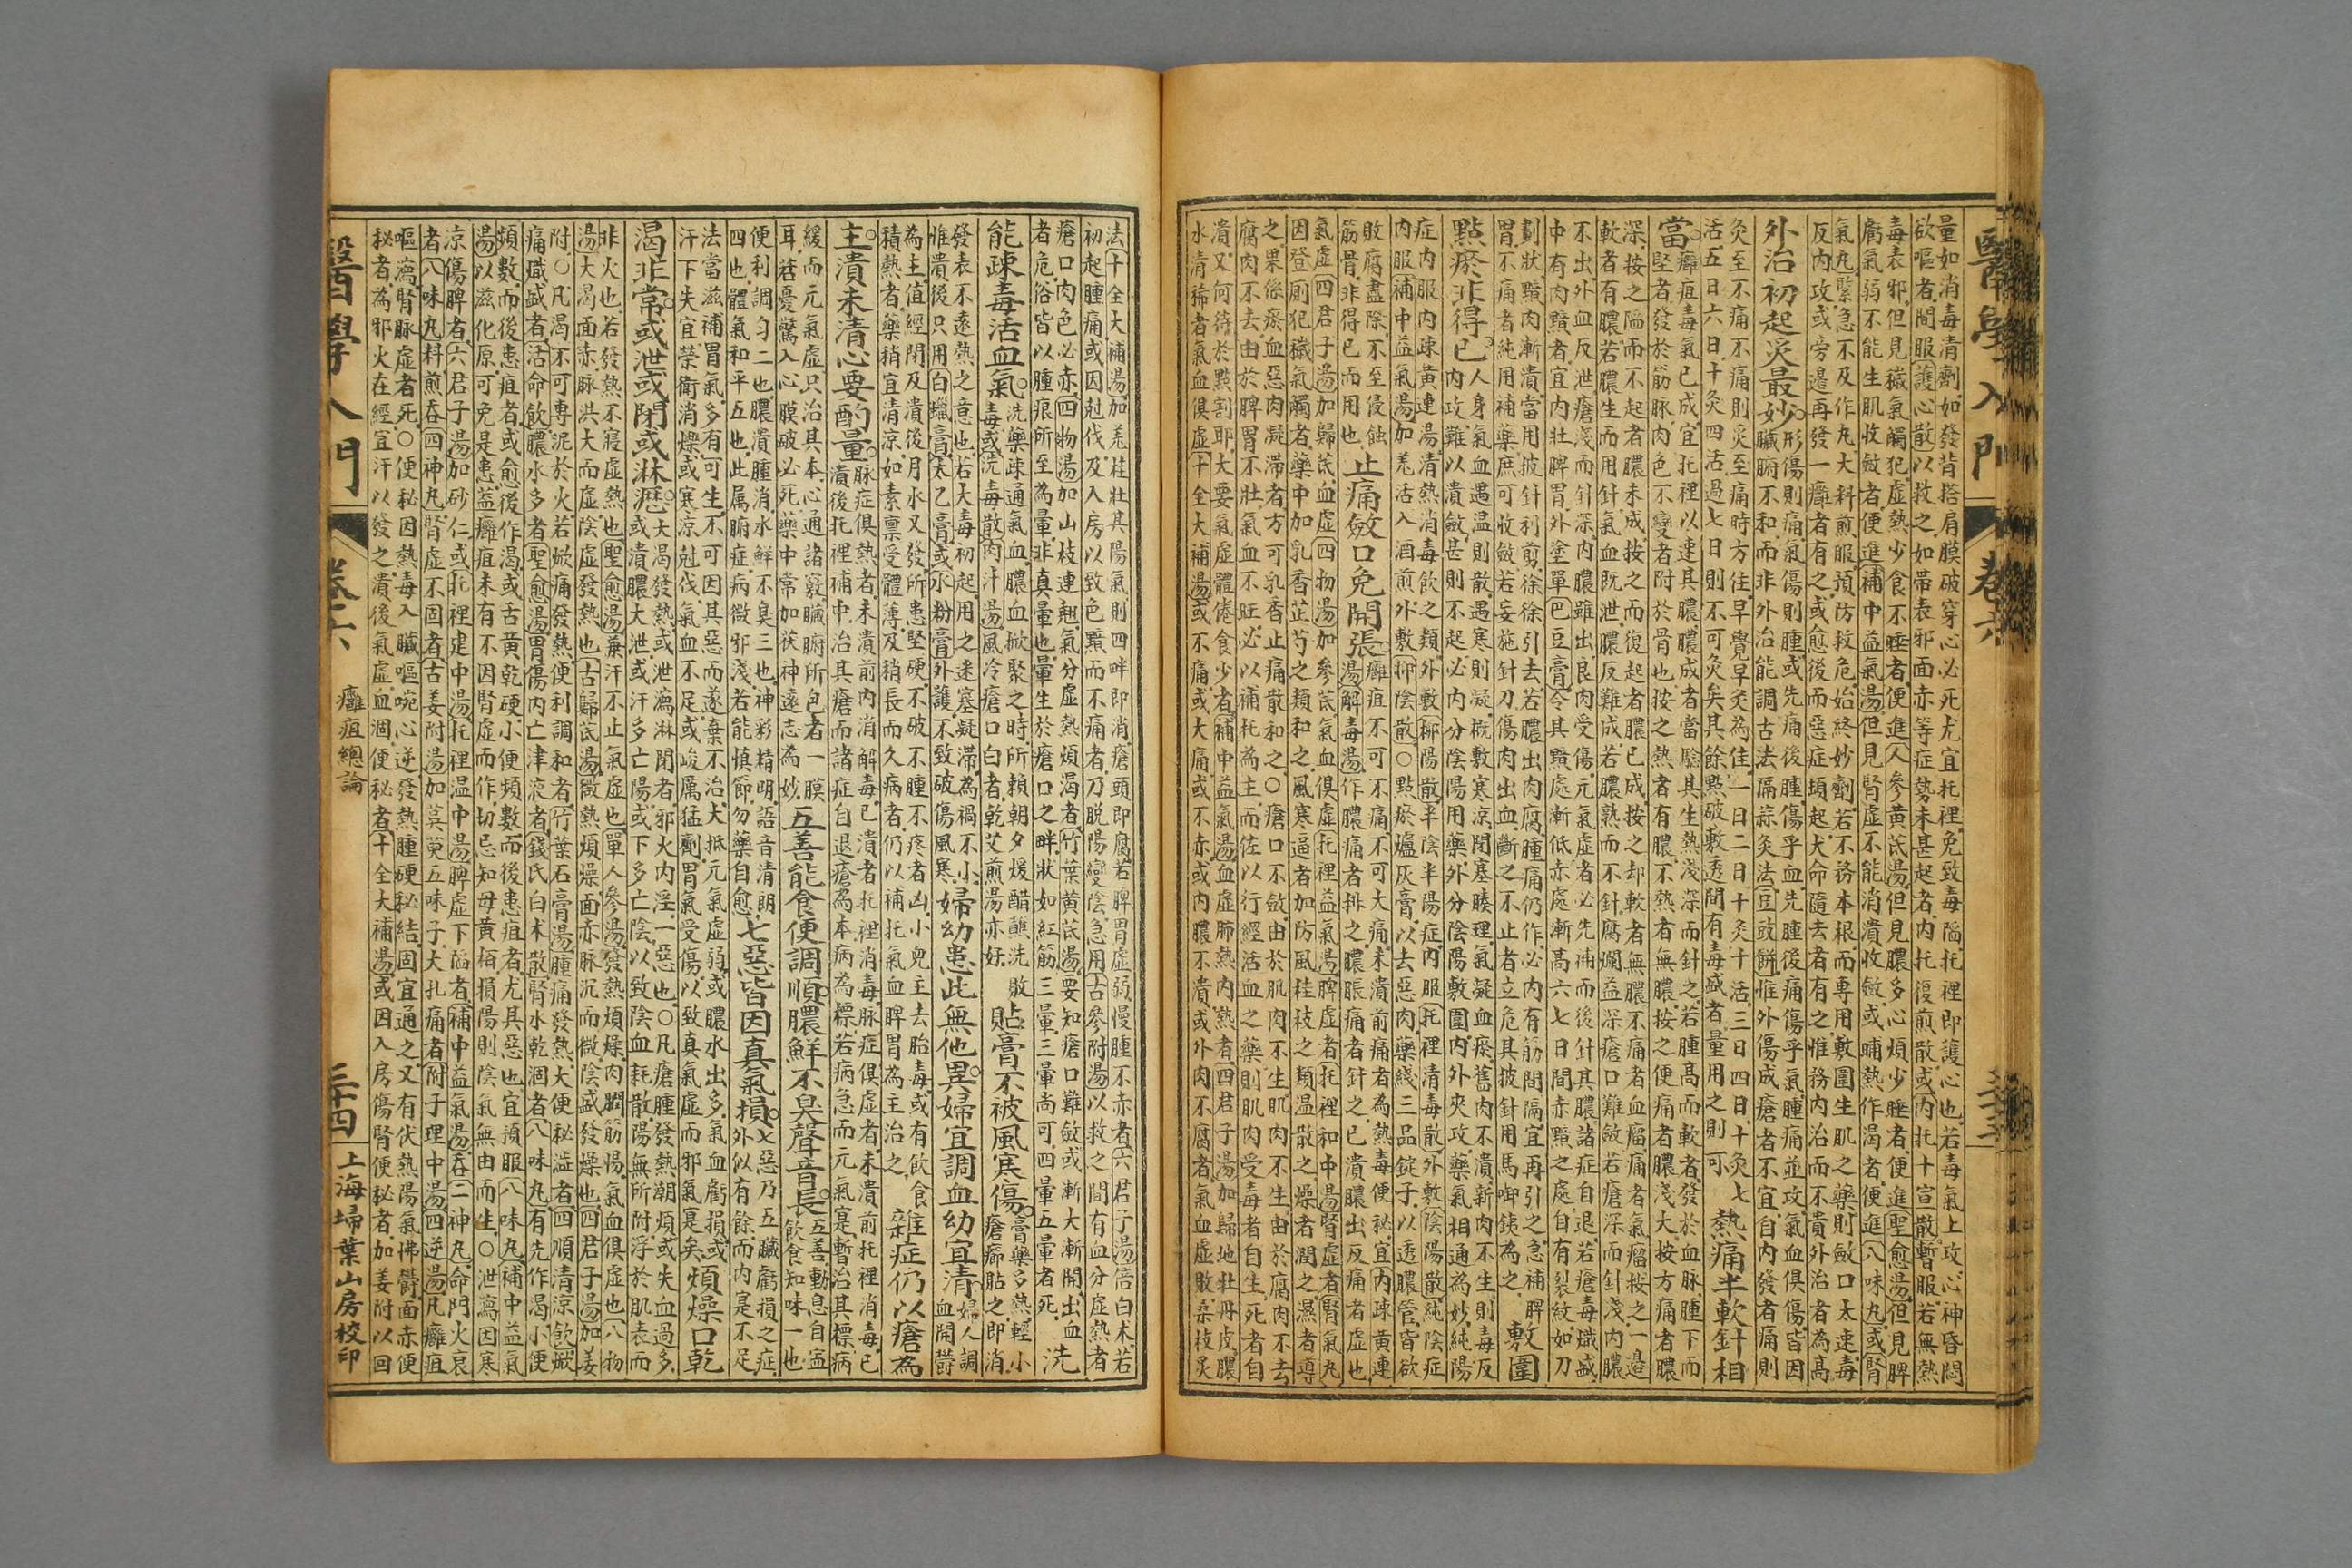 醫學入門
卷六
量如消毒清劑如發背搭肩膜破穿心必死尤宜托裡免致毒陷托裡即護心也若毒氣上攻心神昏悶
欲嘔者間服護心散以救之如帶表邪面赤等症勢未甚起者內托復煎散或內托十宣散暫服若無熱
毒表邪但見穢氣觸犯虛熱少食不睡者便進人參黃芪湯但見膿多心煩少睡者便進聖愈湯但見脾
虧氣弱不能生肌收斂者便進補中益氣湯但見腎虛不能消潰收斂或晡熱作渴者便進八味丸或腎
氣丸緊急不及作丸大料煎服預防救危始終妙劑若不務本根而專用敷圍生肌之藥則斂口太速毒
反內攻或旁邊再發一癰者有之或愈後而惡症頻起犬命隨去者有之惟務內治而不貴外治者為高
外治初起灸最妙
形傷則痛氣傷則腫或先痛後腫傷乎血先腫後痛傷乎氣腫痛並攻氣血俱傷皆因
臟腑不和而非外治能調古法隔蒜灸法豆豉餅惟外傷成瘡者不宜自內發者痛則
灸至不痛不痛則灸至痛時方住早覺早灸為佳一日二日十灸十活三日四日十灸七
活五日六日十灸四活過七日則不可灸矣其餘點破敷透間有毒盛者量用之則可
熱痛半軟針相
當
癰疽毒氣已成宜托裡以速其膿膿成者當驗其生熟淺深而針之若腫高而軟者發於血脉腫下而
堅者發於筋脉肉色不變者附於骨也按之熱者有膿不熱者無膿按之便痛者膿淺大按方痛者膿
深按之陷而不起者膿未成按之而復起者膿已成按之却軟者無膿不痛者血瘤痛者氣瘤按之一邊
軟者有膿若膿生而用針氣血既泄膿反難成若膿熟而不針腐爛益深瘡口難斂若瘡深而針淺內膿
不出外血反泄瘡淺而針深內膿雖出良肉受傷元氣虛者必先補而後針其膿諸症自退若瘡毒熾盛
中有肉黯者宜內壯脾胃外塗單巴豆膏令其黯處漸低赤處漸高六七日間赤黯之處自有裂紋如刀
劃狀黯肉漸潰當用披針利剪徐徐引去若膿出肉腐腫痛仍作必內有筋間隔宜再引之急補脾
胃不痛者純用補藥庶可收斂若妄施針刀傷肉出血斷之不止者立危其披針用馬啣鐵為之
敷圍
點瘀非得已
人身氣血遇温則散遇寒則凝概敷寒凉閉塞腠理氣凝血瘀舊肉不潰新肉不生則毒反
內攻難以潰斂甚則不起必內分陰陽用藥外分陰陽敷圍內外夾攻藥氣相通為妙純陽
症內服內疎黃連湯清熱消毒飲之類外敷抑陽散半陰半陽症內服托裡清毒散外敷陰陽散純陰症
內服補中益氣湯加羗活入酒煎外敷抑陰散○點瘀爐灰膏以去惡肉藥綫三品錠子以透膿管皆欲
敗腐盡除不至侵蝕
筋骨非得已而用也
止痛斂口免開張
癰疽不可不痛不可大痛未潰前痛者為熱毒便秘宜內疎黃連
湯解毒湯作膿痛者排之膿脹痛者針之已潰膿出反痛者虛也
氣虛四君子湯加歸芪血虛四物湯加參芪氣血俱虛托裡益氣湯脾虛者托裡和中湯腎虛者腎氣丸
因登厠犯穢氣觸者藥中加乳香芷芍之類和之風寒逼者加防風桂枝之類温散之燥者潤之濕者導
之果係瘀血惡肉凝滯者方可乳香止痛散和之○瘡口不斂由於肌肉不生肌肉不生由於腐肉不去
腐肉不去由於脾胃不壯氣血不旺必以補托為主而佐以行經活血之藥則肌肉受毒者自生死者自
潰又何待於黙割耶大要氣虛體倦食少者補中益氣湯血虛肺熱內熱者四君子湯加歸地牡丹皮膿
水清稀者氣血俱虛十全大補湯或不痛或大痛或不赤或內膿不潰或外肉不腐者氣血虛敗桑枝灸
法十全大補湯加羗桂壯其陽氣則四畔即消瘡頭即腐若脾胃虛弱慢腫不赤者六君子湯倍白术若
初起腫痛或因尅伐及入房以致色黯而不痛者乃脱陽變陰急用古參附湯以救之間有血分虛熱者
瘡口肉色必赤四物湯加山梔連翹氣分虛熱煩渴者竹葉黃芪湯要知瘡口難斂或漸大漸開出血
者危俗皆以腫痕所至為暈非真暈也暈生於瘡口之畔狀如紅筋三暈三暈尚可四暈五暈者死
洗
能疎毒活血氣
洗藥疎通氣血膿血掀聚之時所賴朝夕煖醋蘸洗
毒或洗毒散肉汁湯風冷瘡口白者乾艾煎湯亦好
敗貼膏不被風寒傷
膏藥多熱輕小
瘡癤貼之即消
發表不遠熱之意也若大毒初起用之迷塞凝滯為禍不小
惟潰後只用白蠟膏太乙膏或水粉膏外護不致破傷風寒
婦幼患此無他異婦宜調血幼宜清
婦人調
血開鬱
為主值經閉及潰後月水又發所患堅硬不破不腫不疼者凶小兒主去胎毒或有飲食
積熱者藥稍宜清凉如素禀受體薄及稍長而久病者仍以補托氣血脾胃為主治之
雜症仍以瘡為
主潰未清心要酌量
脉症俱熱者未潰前內消解毒已潰者托裡消毒脉症俱虛者未潰前托裡消毒已
潰後托裡補中治其瘡而諸症自退瘡為本病為標若病急而元氣寔暫治其標病
緩而元氣虛只治其本心通諸竅臟腑所包者一膜
耳若憂驚入心膜破必死藥中常加茯神遠志為妙
五善能食便調順膿鮮不臭聲音長
五善動息自寍
飲食知味一也
便利調勻二也膿潰腫消水鮮不臭三也神彩精明語音清朗
四也體氣和平五也此属腑症病微邪淺若能慎節勿藥自愈
七惡皆因真氣損
七惡乃五臟虧損之症
外似有餘而內寔不足
法當滋補胃氣多有可生不可因其惡而遂棄不治大抵元氣虛弱或膿水出多氣血虧損或
汗下失宜榮衞消爍或寒凉尅伐氣血不足或峻厲猛劑胃氣受傷以致真氣虛而邪氣寔矣
煩燥口乾
渴非常或泄或閉或淋瀝
大渴發熱或泄瀉淋閉者邪火內淫一惡也○凡瘡腫發熱潮煩或失血過多
或潰膿大泄或汗多亡陽或下多亡陰以致陰血耗散陽無所附浮於肌表而
非火也若發熱不寢虛熱也聖愈湯兼汗不止氣虛也單人參湯發熱煩燥肉瞤筋惕氣血俱虛也八物
湯大渴面赤脉洪大而虛陰虛發熱也古歸芪湯微熱煩燥面赤脉沉而微陰盛發燥也四君子湯加姜
附○凡渴不可專泥於火若焮痛發熱便利調和者竹葉石膏湯腫痛發熱大便秘澁者四順清凉飲焮
痛熾盛者活命飲膿水多者聖愈湯胃傷內亡津液者錢氏白术散腎水乾涸者八味丸有先作渴小便
頻數而後患疽者或愈後作渴或舌黃乾硬小便頻數而後患疽者尤其惡也宜預服八味丸補中益氣
湯以滋化原可免是患盖癰疽未有不因腎虛而作切忌知母黃栢損陽則陰氣無由而生○泄瀉因寒
凉傷脾者六君子湯加砂仁或托裡建中湯托裡温中湯脾虛下陷者補中益氣湯吞二神丸命門火衰
者八味丸料煎吞四神丸腎虛不固者古姜附湯加萸五味子大孔痛者附子理中湯四逆湯凡癰疽
嘔瀉腎脉虛者死○便秘因熱毒入臟嘔啘心逆發熱腫硬秘結固宜通之又有伏熱陽氣怫鬱面赤便
秘者為邪火在經宜汗以發之潰後氣虛血涸便秘者十全大補湯或因入房傷腎便秘者加姜附以回
醫學入門
卷六
癰疽總論
三十四
上海埽葉山房校印